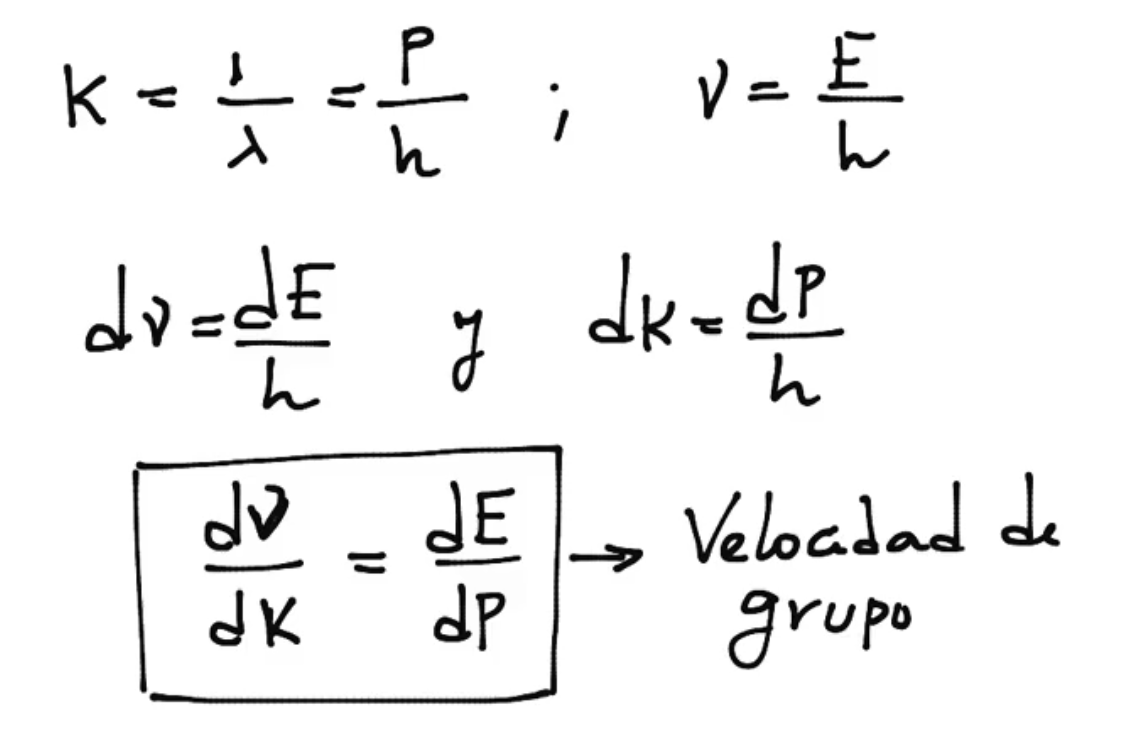 K = 1/λ = P/h ; ν = E/h
dν = dE/h y dK = dP/h
dν/dK = dE/dP → Velocidad de
grupo